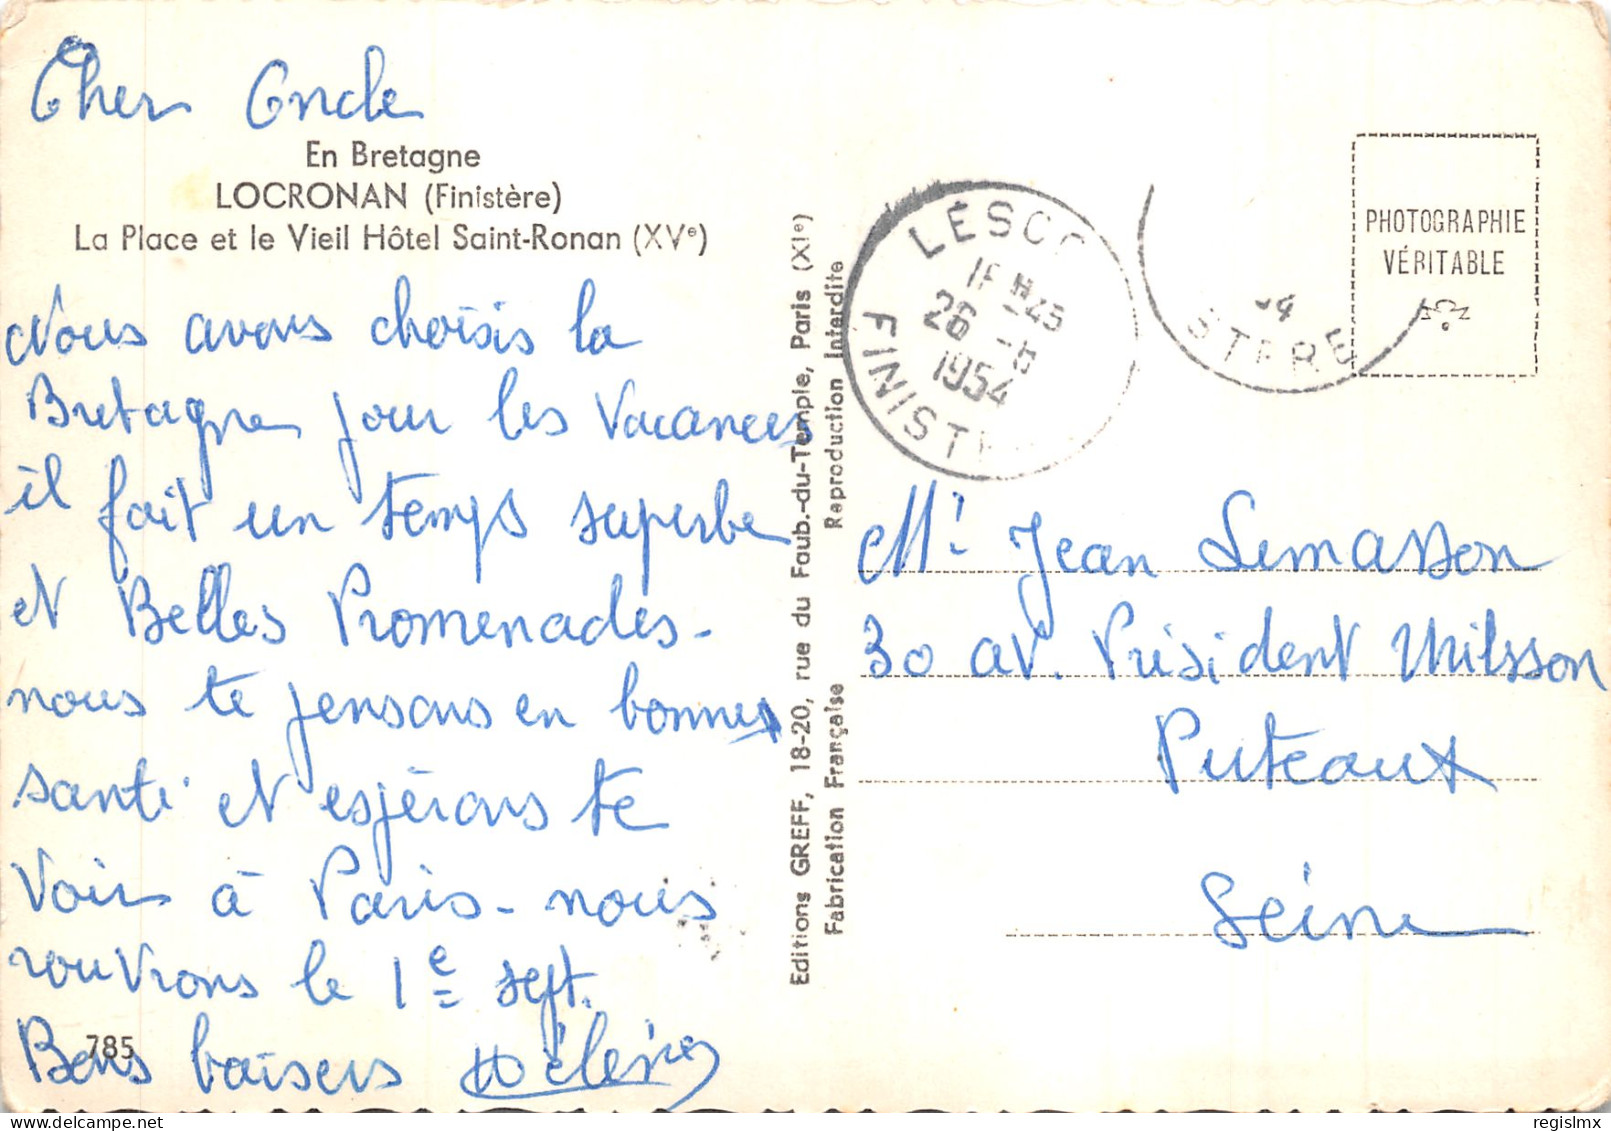 Cher Oncle
En Bretagne
LOCRONAN (Finistère)
La Place et le Vieil Hôtel Saint-Ronan (XVe)
Nous avons choisis la
Bretagne pour les Vacances
il fait un temps superbe
et Belles Promenades-
nous te pensons en bonnes
santé et espérons te
Voir à Paris - nous
rouvrons le 1e sept.
785
Bons baisers
Editions GREFF, 18-20, rue du Faub.-du-Temple, Paris (XIe)
Fabrication Française Reproduction Interdite
LESCO
26
1954
FINIST
54
STERE
PHOTOGRAPHIE
VÉRITABLE
Mr. Jean Lemasson
30 av. Président Wilsson
Puteaux
Seine
regislmx